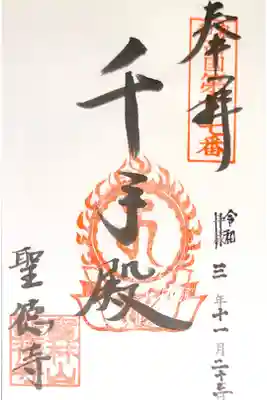 奉拝
千手殿
令和三年十一月二十三日
聖徳寺